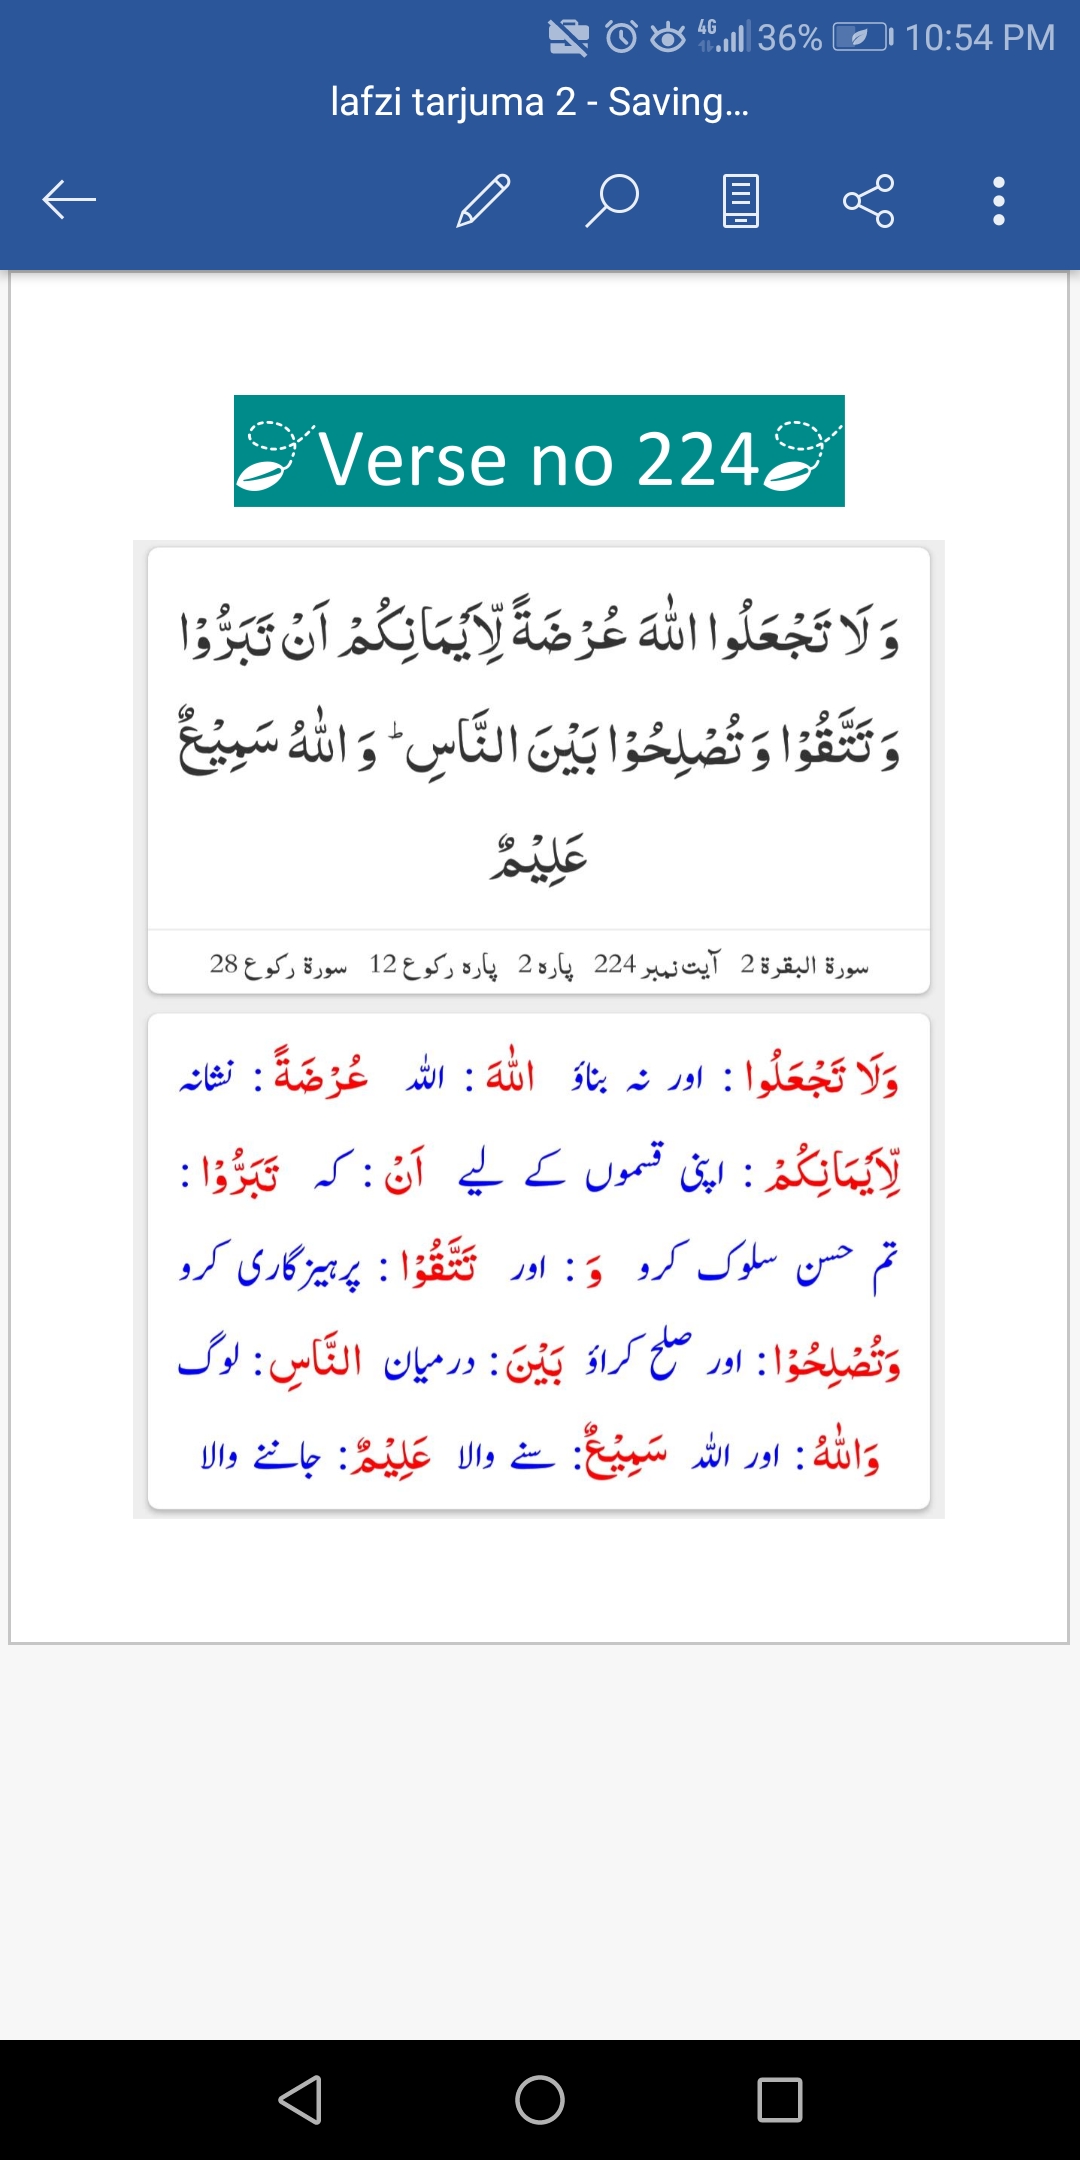 4G 36% 10:54 PM
lafzi tarjuma 2 - Saving...
Verse no 224
وَ لَا تَجْعَلُوا اللّٰهَ عُرْضَةً لِّاَیْمَانِكُمْ اَنْ تَبَرُّوْا
وَ تَتَّقُوْا وَ تُصْلِحُوْا بَیْنَ النَّاسِ ؕ وَ اللّٰهُ سَمِیْعٌ
عَلِیْمٌ
سورۃ البقرۃ 2 آیت نمبر 224 پارہ 2 پارہ رکوع 12 سورۃ رکوع 28
وَلَا تَجْعَلُوا : اور نہ بناؤ اللّٰهَ : اللہ عُرْضَةً : نشانہ
لِّاَیْمَانِكُمْ : اپنی قسموں کے لیے اَنْ : کہ تَبَرُّوْا :
تم حسن سلوک کرو وَ : اور تَتَّقُوْا : پرہیزگاری کرو
وَتُصْلِحُوْا : اور صلح کراؤ بَیْنَ : درمیان النَّاسِ : لوگ
وَاللّٰهُ : اور اللہ سَمِیْعٌ : سنے والا عَلِیْمٌ : جاننے والا